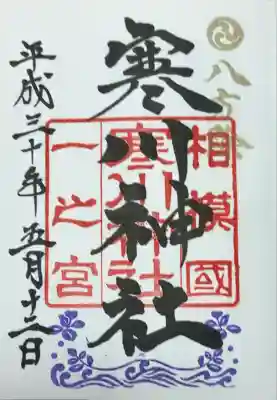 八方除
寒川神社
相模國
寒川神社
一之宮
平成三十年五月十二日